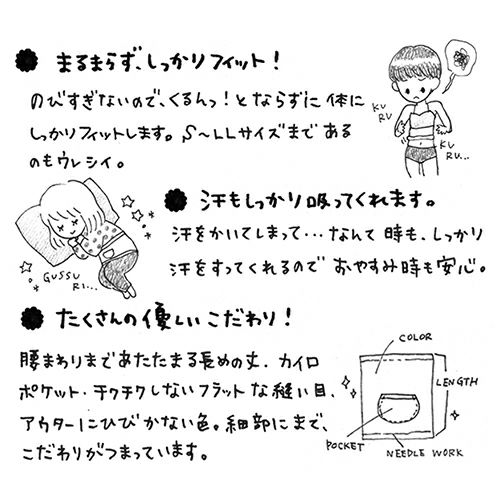 まるまらず、しっかりフィット！
のびすぎないので、くるんっ！とならずに体に
しっかりフィットします。S〜LLサイズまである
のもウレシイ。
KU
RU
KU
RU...
汗もしっかり吸ってくれます。
汗をかいてしまって・・・なんて時も、しっかり
汗をすってくれるのでおやすみ時も安心。
GUSSU
RI...
たくさんの優しいこだわり！
腰まわりまであたたまる長めの丈、カイロ
ポケット・チクチクしないフラットな縫い目、
アウターにひびかない色。細部にまで、
こだわりがつまっています。
COLOR
LENGTH
POCKET
NEEDLE WORK